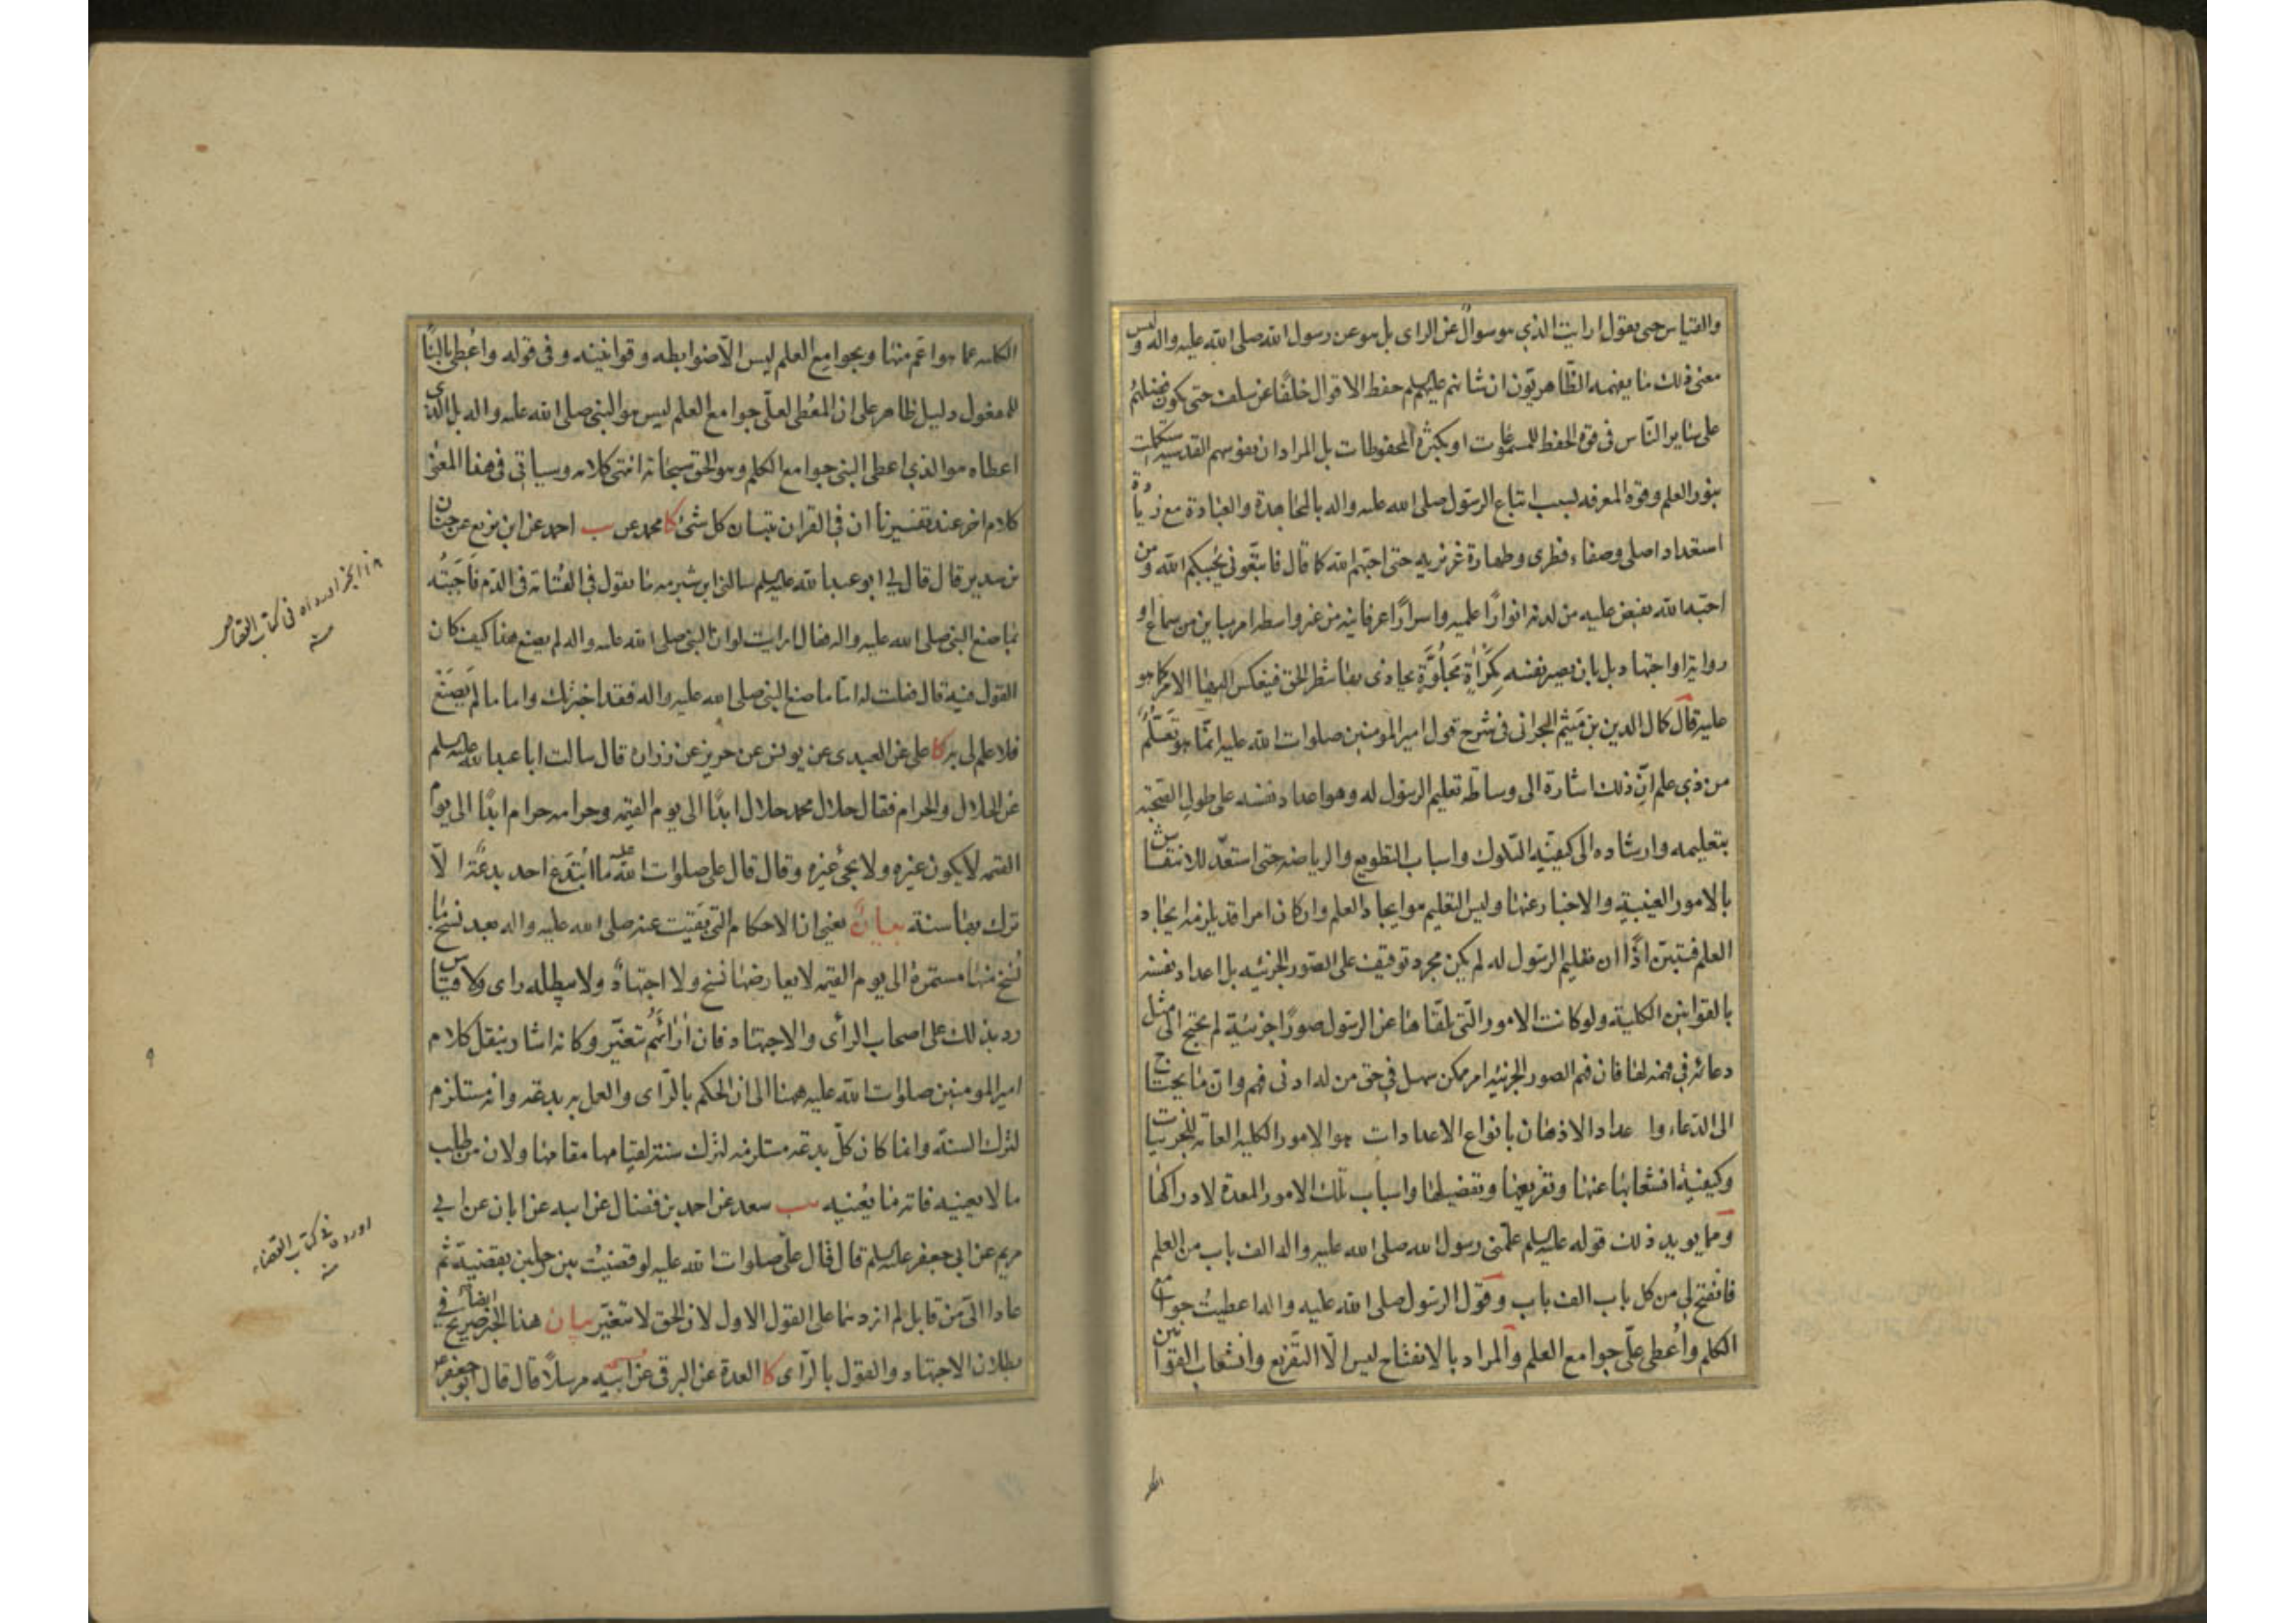 والقياس حتى يقول ارايت الذي هو سوال عن الراى بل هو عن رسول الله صلى الله عليه واله وليس
معنى ذلك ما يفهمه الظاهريّون ان شانهم عليهم السلم حفظ الاقوال خلفًا عن سلف حتى يكون فضلهم
على ساير النّاس فى قوة الحفظ للمسموعات او بكثرة المحفوظات بل المراد ان نفوسهم القدسية استكملت
بنور العلم وقوة المعرفة بسبب اتباع الرسول صلى الله عليه واله بالمجاهدة والعبادة مع زيادة
استعداد اصلى وصفاء فطرى وطهارة غريزيه حتى احبّهم الله كما قال فاتبعونى يحببكم الله ومن
احبّه الله يفيض عليه من لدنه انوارًا علمية واسرارًا عرفانيه من غير واسطه امر مباين من سماع او
رواية او اجتهاد بل بان يصير نفسه كمِرْآة مَجلُوَّة يحاذى بها شطر الحق فينعكس اليها الامر كما هو
عليه قال كمال الدين بن ميثم البحرانى فى شرح قول امير المومنين صلوات الله عليه انّما هو تعلّم
من ذي علم انّ ذلك اشارة الى وساطة تعليم الرسول له وهو اعداد نفسه على طول الصّحبة
بتعليمه وارشاده الى كيفيّة السّلوك واسباب التطويع والرياضه حتى استعدّ للانتقاش
بالامور الغيبيّة والاخبار عنها وليس التعليم هو ايجاد العلم وان كان امرا قد يلزمه ايجاد
العلم فتبيّن اذًا ان تعليم الرسول له لم يكن مجرد توقيف على الصّور الجزئيه بل اعداد نفسه
بالقوانين الكلية ولو كانت الامور الّتى تلقّاها عن الرسول صورًا جزئية لم يحتج الى مثل
دعائه فى فهمه لها فان فهم الصور الجزئيه امر ممكن سهل فى حق من له ادنى فهم وانّ ما يحتاج
الى الدّعاء واعداد الاذهان بانواع الاعدادات هو الامور الكليه العامّة للجزئيات
وكيفيّة انشعابها عنها وتفريعها وتفصيلها واسباب تلك الامور المعدة لادراكها
وممّا يويد ذلك قوله عليه السلم علّمنى رسول الله صلى الله عليه واله الف باب من العلم
فانفتح لى من كل باب الف باب وقول الرسول صلى الله عليه واله اعطيت جوامع
الكلم واُعطى علىّ جوامع العلم والمراد بالانفتاح ليس الّا التّفريع وانشعاب القوانين
الكليه عما هو اعم منها وبجوامع العلم ليس الّا ضوابطه وقوانينه وفى قوله واعطى بالبنا
للمفعول دليل ظاهر على ان المعُطى لعلىّ جوامع العلم ليس هو النبى صلى الله عليه واله بل الّذى
اعطاه هو الذي اعطى النبى جوامع الكلم وهو الحق سبحانه انتهى كلامه وسياتى فى هذا المعنى
كلام اخر عند تفسيرنا ان فى القران تبيان كل شئ كا محمد عن احمد عن ابن بزيع عن حنان
بن سدير قال قال لى ابو عبد الله عليه السلم سالنى ابن شبرمه ما يقول فى القسامة فى الدّم فاَجبتُه
بما صنع النبى صلى الله عليه واله فقال ارايت لو ان النبى صلى الله عليه واله لم يصنع هذا كيف كان
القول فيه قال فقلت له امّا ما صنع النبى صلى الله عليه واله فقد اخبرتك واما ما لم يصنع
فلا علم لى به كا على عن العبيدى عن يونس عن حريز عن زرارة قال سالت ابا عبد الله عليه السلم
عن الحلال والحرام فقال حلال محمد حلال ابدًا الى يوم القيمه وحرامه حرام ابدًا الى يوم
القيمه لا يكون غيره ولا يجئ غيره وقال قال على صلوات الله عليه ما ابتدع احد بدعَة الّا
ترك بها سنة بيان يعنى ان الاحكام التى بقيت عنه صلى الله عليه واله بعد نسخ ما
نُسخ منها مستمرة الى يوم القيمه لا يعارضها نسخ ولا اجتهاد ولا يبطله راى ولا قياس
رد بذلك على اصحاب الراى والاجتهاد فان اراءهم تتغيّر وكانه اشار بنقل كلام
امير المومنين صلوات الله عليه ههنا الى ان الحكم بالرّاى والعمل به بدعة وانه مستلزم
لترك السنّة وانما كان كلّ بدعة مستلزمه لترك سنّة لقيامها مقامها ولان من طلب
ما لا يعنيه فاته ما يعُنيه سعد عن احمد بن فضال عن ابيه عن ابان عن ابى
مريم عن ابى جعفر عليه السلم قال قال علىّ صلوات الله عليه لو قضيت بين رجلين بقضيّة ثم
عادا الىّ من قابل لم ازدهما على القول الاول لان الحق لا يتغيّر بيان هذا الخبر ايضا صريح فى
بطلان الاجتهاد والقول بالرّاى كا العدة عن البرقى عن ابيه مرسلًا قال قال ابو جعفر ع
هذا الخبر اورداه فى كتاب القصاص
منه
اورده فى كتاب القضاء
منه